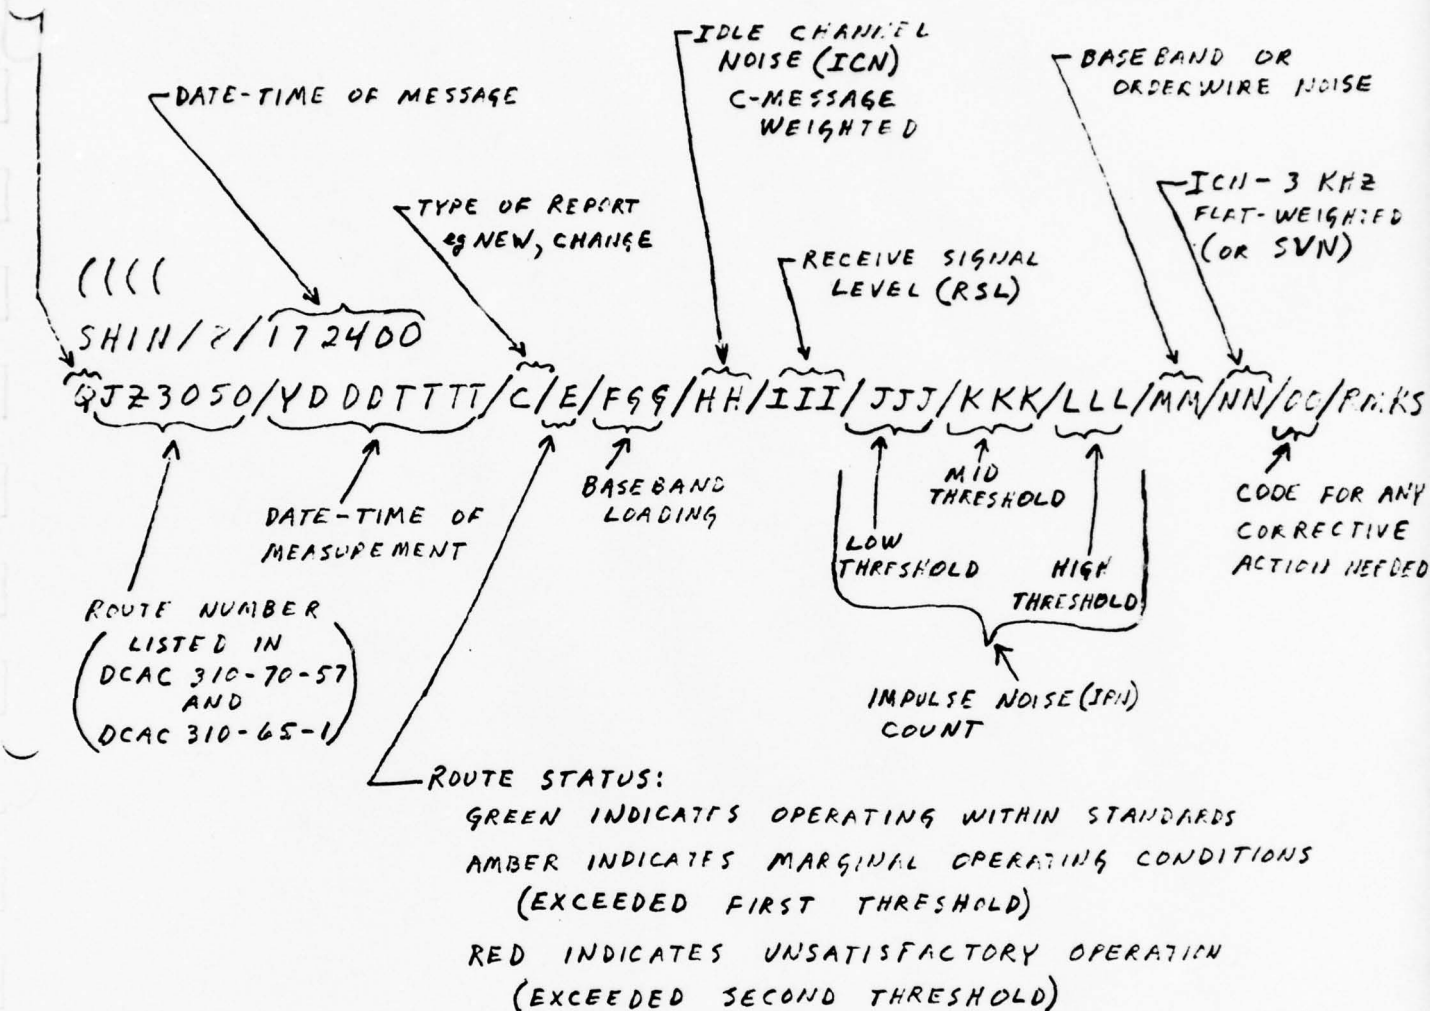 IDLE CHANNEL
NOISE (ICN)
C-MESSAGE
WEIGHTED
BASEBAND OR
ORDERWIRE NOISE
DATE-TIME OF MESSAGE
ICN - 3 KHZ
FLAT-WEIGHTED
(OR SVN)
TYPE OF REPORT
eg NEW, CHANGE
RECEIVE SIGNAL
LEVEL (RSL)
((((
SHIN/ /172400
QJZ3050/YDDDTTTT/C/E/FGG/HH/III/JJJ/KKK/LLL/MM/NN/OO/RMKS
BASEBAND
LOADING
MID
THRESHOLD
CODE FOR ANY
CORRECTIVE
ACTION NEEDED
DATE-TIME OF
MEASUREMENT
LOW
THRESHOLD
HIGH
THRESHOLD
ROUTE NUMBER
(LISTED IN
DCAC 310-70-57
AND
DCAC 310-65-1)
IMPULSE NOISE (IPN)
COUNT
ROUTE STATUS:
GREEN INDICATES OPERATING WITHIN STANDARDS
AMBER INDICATES MARGINAL OPERATING CONDITIONS
(EXCEEDED FIRST THRESHOLD)
RED INDICATES UNSATISFACTORY OPERATION
(EXCEEDED SECOND THRESHOLD)